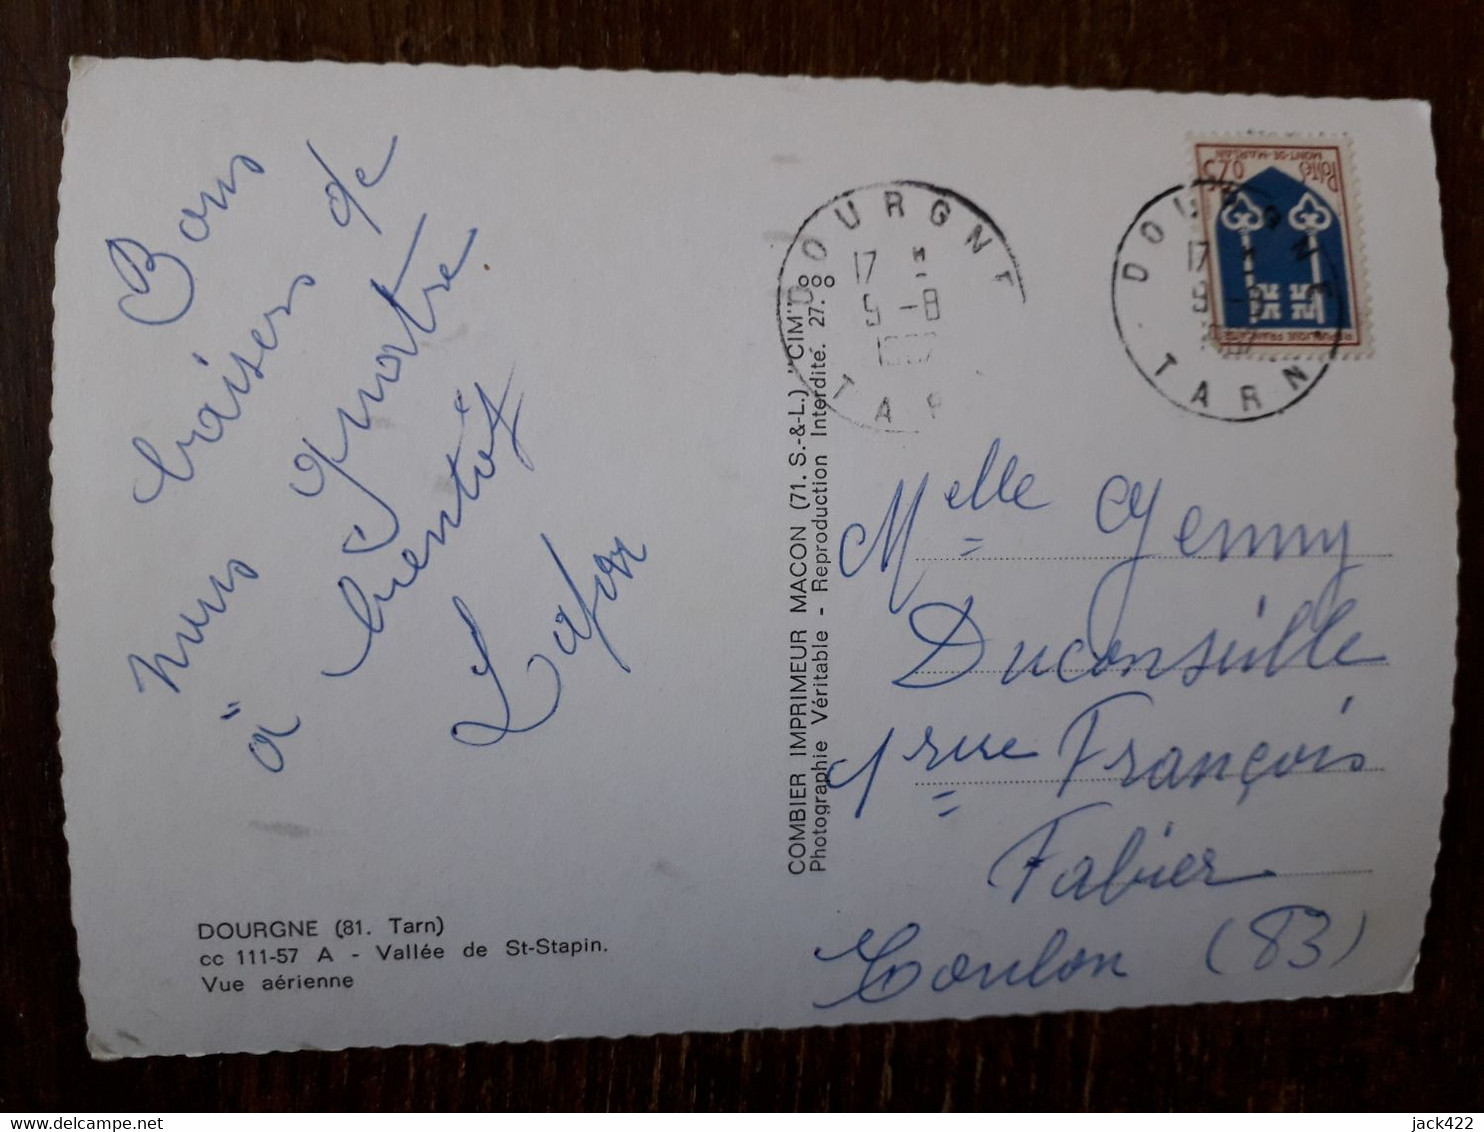 Bons
baisers de
nous quatre
à bientôt
DOURGNE (81. Tarn)
cc 111-57 A - Vallée de St-Stapin.
Vue aérienne
COMBIER IMPRIMEUR MACON (71. S.-&-L.) "CIM"
Photographie Véritable - Reproduction Interdite. 27.
DOURGNE
17 H
9 -8
TAR
DOURGNE
17 H
9 -8
TARN
Postes 0,25
MONT-DE-MARSAN
REPUBLIQUE FRANÇAISE
Melle Jenny
Duconseille
1 rue François
Fabier
Toulon (83)
jack422